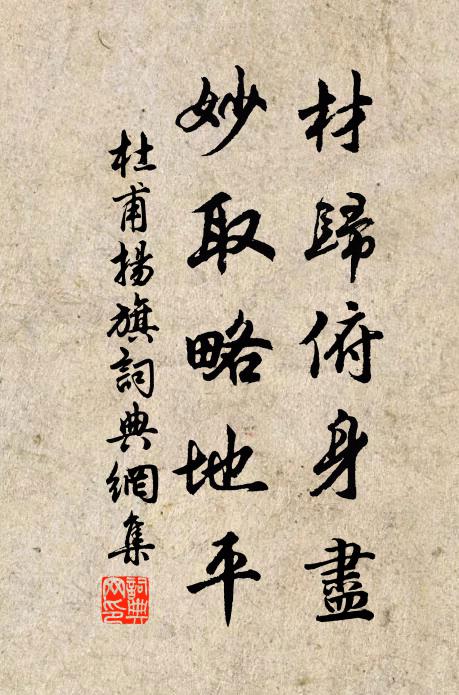 材歸俯身盡
妙取略地平
杜甫揚旗詞典網集
詞典网印